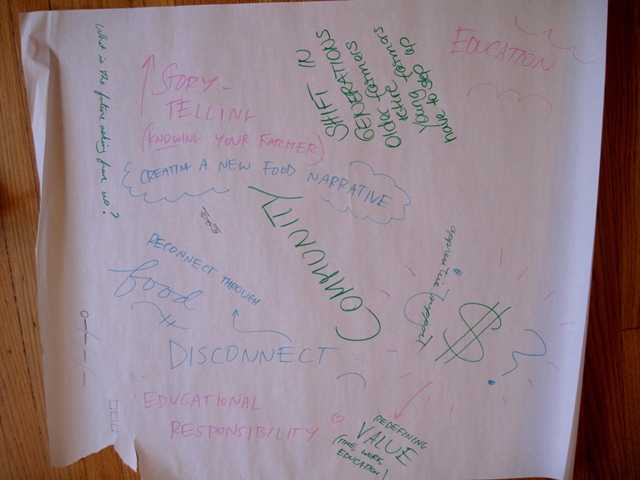 EDUCATION
SHIFT IN
GENERATIONS
Older farmers
retire
Young farmers
have to step up
STORY-
TELLING
(KNOWING YOUR FARMER)
CREATING A NEW FOOD NARRATIVE
What is the future asking from us?
COMMUNITY
RECONNECT THROUGH
food
DISCONNECT
$?
EDUCATIONAL
RESPONSIBILITY
REDEFINING
VALUE
(TIME, WORK,
EDUCATION)